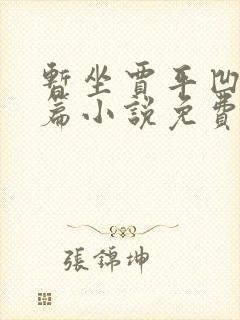 暫坐賈平凹
篇小說免費
張錦坤